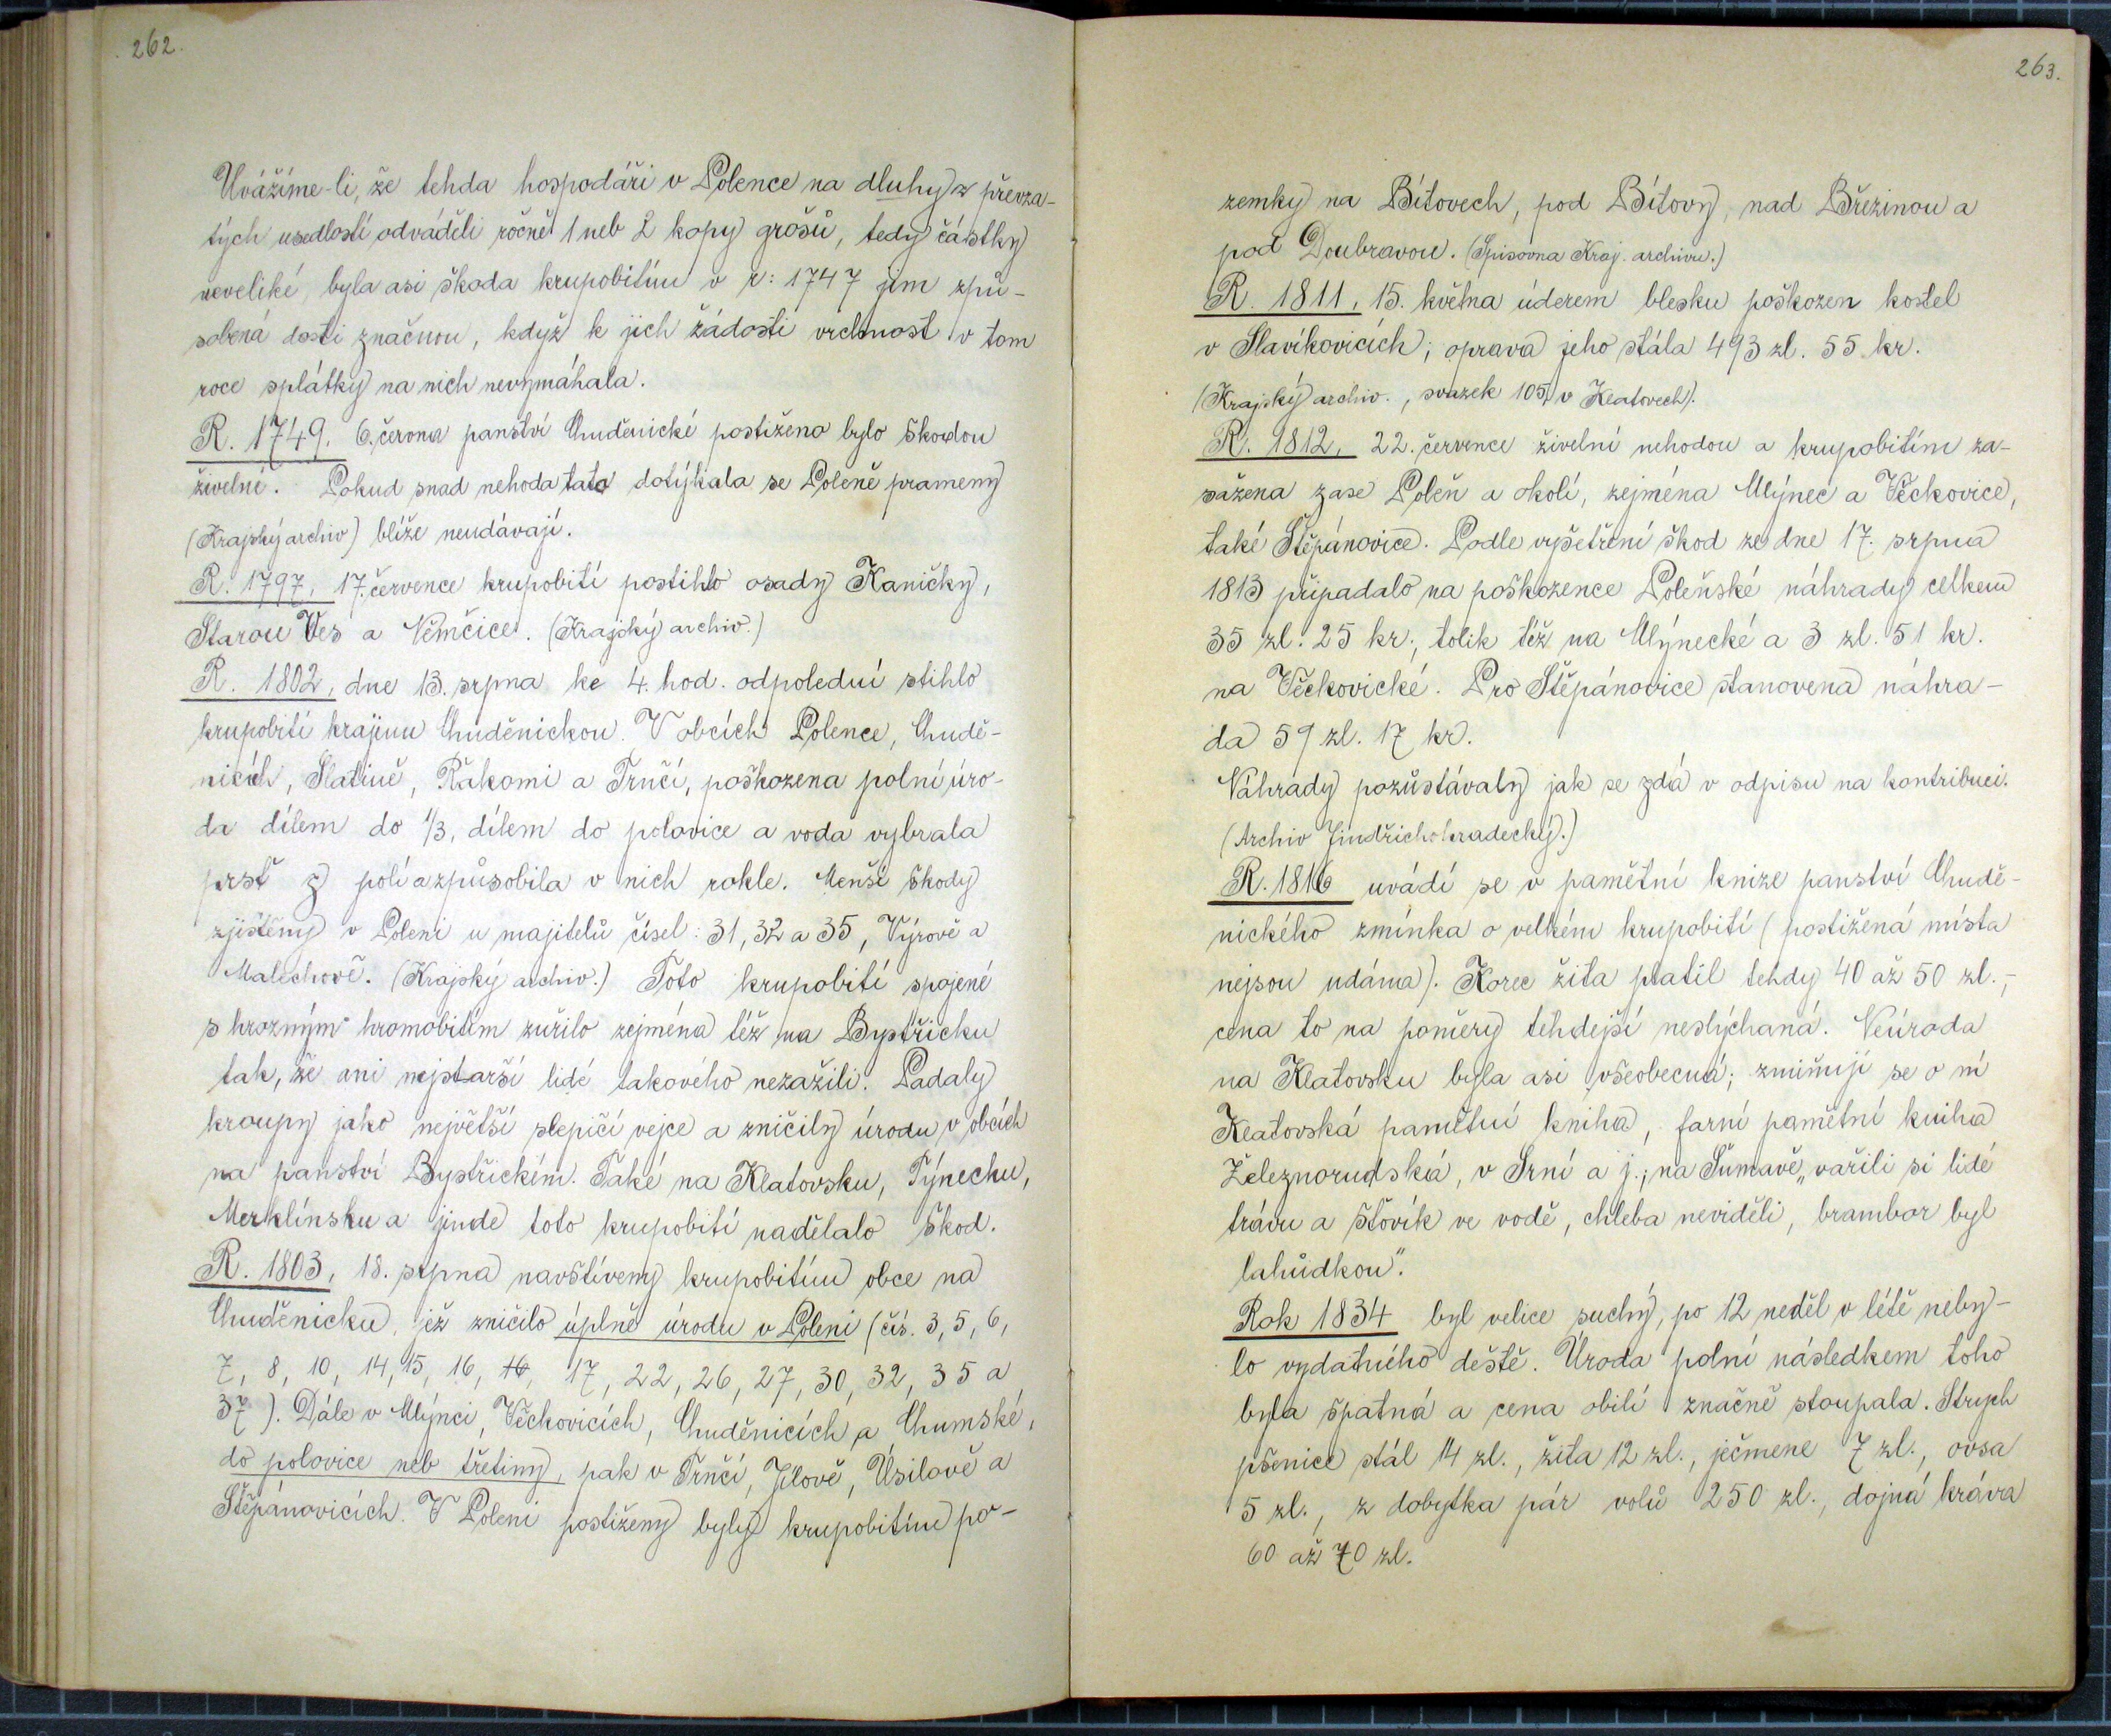 262.
Uvážíme-li, že tehda hospodáři v Polence na dluhy z převza-
tých usedlostí odváděli ročně 1 neb 2 kopy grošů, tedy částky
neveliké, byla asi škoda krupobitím v r: 1747 jim způ-
sobená dosti značnou, když k jich žádosti vrchnost v tom
roce splátky na nich nevymáhala.
R. 1749, 6. června panství Chudenické postiženo bylo škodou
živelní. Pokud snad nehoda tato dotýkala se Poleně prameny
(Krajský archiv) blíže neudávají.
R. 1797, 17. července krupobití postihlo osady Kaničky,
Starou Ves a Němčice. (Krajský archiv.)
R. 1802, dne 13. srpna ke 4. hod. odpolední stihlo
krupobití krajinu Chuděnickou. V obcích Polence, Chudě-
nicích, Slatině, Řakomi a Trnčí, poškozena polní úro-
da dílem do 1/3, dílem do polovice a voda vybrala
prsť z polí a způsobila v nich rokle. Menší škody
zjištěny v Poleni u majitelů čísel: 31, 32 a 35, Výrově a
Malechově. (Krajský archiv.) Toto krupobití spojené
s hrozným hromobitím zuřilo zejména též na Bystřicku
tak, že ani nejstarší lidé takového nezažili. Padaly
kroupy jako největší slepičí vejce a zničily úrodu v obcích
na panství Bystřickém. Také na Klatovsku, Týnecku,
Merklínsku a jinde toto krupobití nadělalo škod.
R. 1803, 18. srpna navštíveny krupobitím obce na
Chuděnicku, jež zničilo úplně úrodu v Poleni (čís. 3, 5, 6,
7, 8, 10, 14, 15, 16, 16, 17, 22, 26, 27, 30, 32, 35 a
37). Dále v Mlýnci, Věckovicích, Chuděnicích a Chumské,
do polovice neb třetiny, pak v Trnčí, Jílově, Úsilově a
Štěpánovicích. V Poleni postiženy byly krupobitím po-
263.
zemky na Bítovech, pod Bítovy, nad Březinou a
pod Doubravou. (Spisovna Kraj. archivu.)
R. 1811, 15. května úderem blesku poškozen kostel
v Slavíkovicích; oprava jeho stála 493 zl. 55 kr.
(Krajský archiv., svazek 105, v Klatovech).
R. 1812, 22. července živelní nehodou a krupobitím za-
sažena zase Poleň a okolí, zejména Mlýnec a Věckovice,
také Štěpánovice. Podle vyšetření škod ze dne 17. srpna
1813 připadalo na poškozence Poleňské náhrady celkem
35 zl. 25 kr., tolik též na Mlýnecké a 3 zl. 51 kr.
na Věckovické. Pro Štěpánovice stanovena náhra-
da 59 zl. 17 kr.
Náhrady pozůstávaly jak se zdá v odpisu na kontribuci.
(Archiv Jindřichohradecký.)
R. 1816 uvádí se v pamětní knize panství Chudě-
nického zmínka o velkém krupobití (postižená místa
nejsou udána). Korec žita platil tehdy 40 až 50 zl.,-
cena to na poměry tehdejší neslýchaná. Neúroda
na Klatovsku byla asi všeobecná; zmiňují se o ní
Klatovská pamětní kniha, farní pamětní kniha
Železnorudská, v Srní a j.; na Šumavě „vařili si lidé
trávu a šťovík ve vodě, chleba neviděli, brambor byl
lahůdkou".
Rok 1834 byl velice suchý, po 12 neděl v létě neby-
lo vydatného deště. Úroda polní následkem toho
byla špatná a cena obilí značně stoupala. Strych
pšenice stál 14 zl., žita 12 zl., ječmene 7 zl., ovsa
5 zl., z dobytka pár volů 250 zl., dojná kráva
60 až 70 zl.